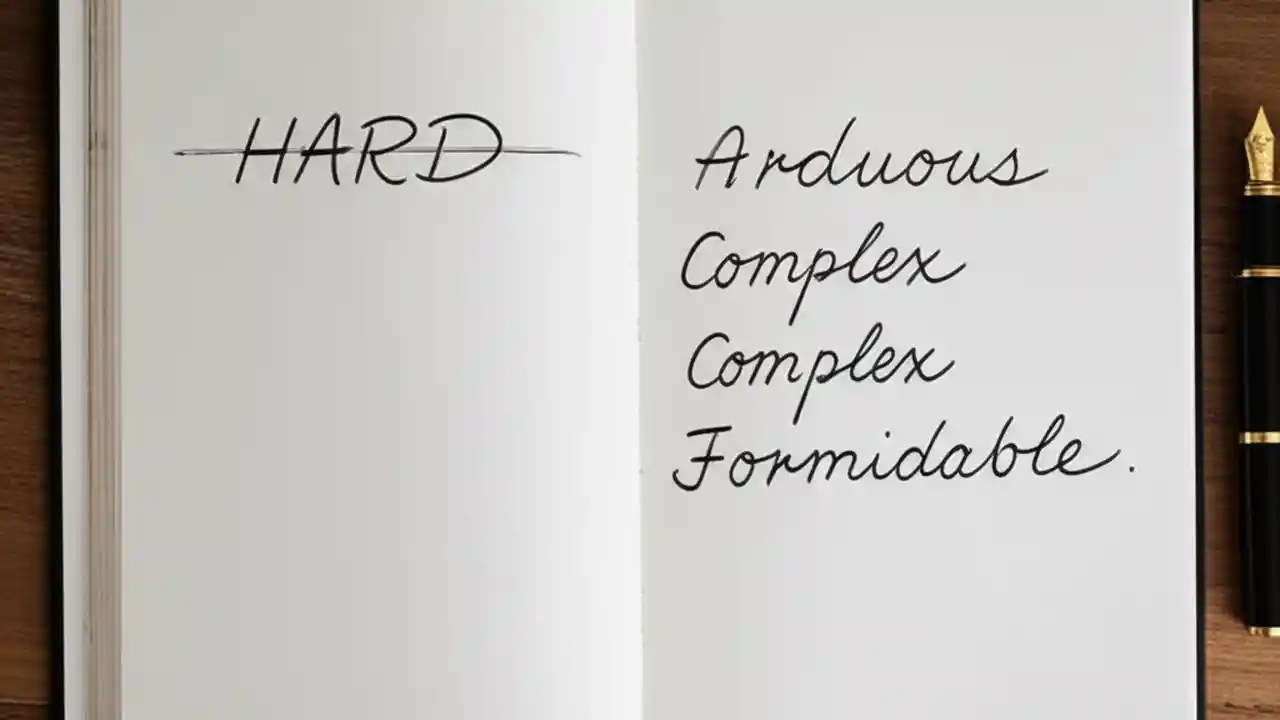 HARD
Arduous
Complex
Complex
Formidable.